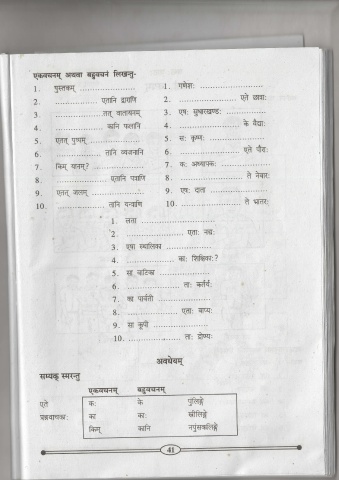 एकवचनम् अथवा बहुवचनं लिखन्तु-
1. पुस्तकम् ..................
2. .................. एतानि द्वाराणि
3. .................. तत् वातायनम्
4. .................. कानि फलानि
5. एतत् पुष्पम् ..................
6. .................. तानि व्यजनानि
7. किम् यानम्? ..................
8. .................. एतानि पत्राणि
9. एतत् जालम् ..................
10. .................. तानि यन्त्राणि
1. गणेशः ..................
2. .................. एते छात्राः
3. एषः सुधाखण्डः ..................
4. .................. के वैद्याः
5. सः कृष्णः ..................
6. .................. एते पौत्राः
7. कः अध्यापकः ..................
8. .................. ते नेतारः
9. एषः दाता ..................
10. .................. ते भ्रातरः
1. लता ..................
2. .................. एताः नद्यः
3. एषा स्थालिका ..................
4. .................. काः शिक्षिकाः?
5. सा वाटिका ..................
6. .................. ताः कर्तर्यः
7. का पार्वती ..................
8. .................. एताः वाप्यः
9. सा कूपी ..................
10. .................. ताः द्रोण्यः
अवधेयम्
सम्यक् स्मरन्तु
एकवचनम् बहुवचनम्
एते कः के पुल्लिङ्गे
प्रश्नवाचकाः का काः स्त्रीलिङ्गे
किम् कानि नपुंसकलिङ्गे
41